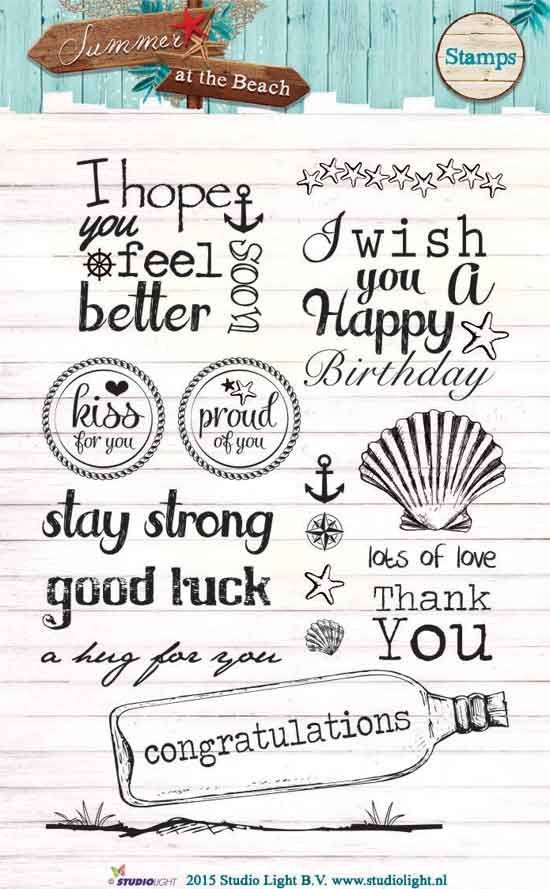 Summer
at the Beach
Stamps
I hope
you
feel
better
soon
I wish
you A
Happy
Birthday
kiss
for you
proud
of you
stay strong
good luck
a hug for you
lots of love
Thank
You
congratulations
© STUDIOLIGHT
2015 Studio Light B.V. www.studiolight.nl